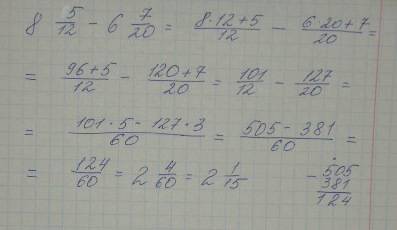 8 5/12 − 6 7/20 = (8·12+5)/12 − (6·20+7)/20 =
= (96+5)/12 − (120+7)/20 = 101/12 − 127/20 =
= (101·5 − 127·3)/60 = (505 − 381)/60 =
= 124/60 = 2 4/60 = 2 1/15
− 505
381
124